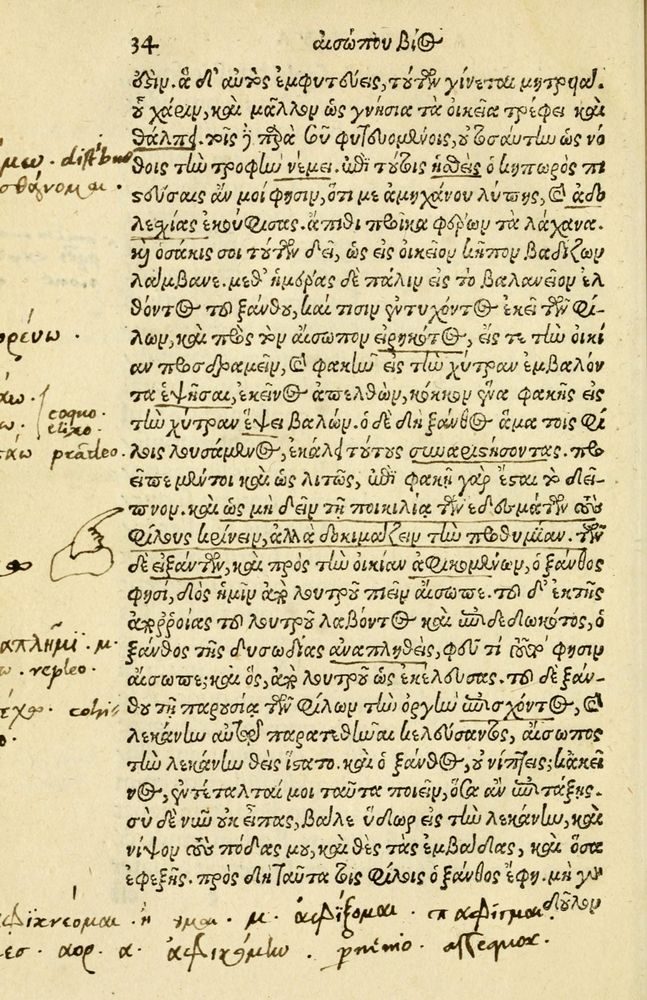 34 αἰσώπου βίος
ἃ δ' αὐτὸς ἐμφυτεύεις, τούτων γίνεται μητρυιά.
οὗ χάριν, καὶ μᾶλλον ὡς γνήσια τὰ οἰκεῖα τρέφει καὶ
θάλπει. τοῖς δὲ παρὰ σοῦ φυτευομένοις, ὡσαύτως ὡς νό
θοις τὴν τροφὴν νέμει. ἐπὶ τούτοις ἡσθεὶς ὁ κηπωρὸς πι
στεύσαις ἄν μοί φησιν, ὅτι με ἀμηχάνου λύπης, καὶ ἀδο
λεχίας ἐκούφισας. ἄπιθι προῖκα φέρων τὰ λάχανα.
κἢ ὁσάκις σοι τούτων δεῖ, ὡς εἰς οἰκεῖον κῆπον βαδίζων
λάμβανε. μεθ' ἡμέρας δὲ πάλιν εἰς τὸ βαλανεῖον ἐλ
θόντος τοῦ ξάνθου, καί τισιν ἐντυχόντος ἐκεῖ τῶν φί-
λων, καὶ πρὸς τὸν αἴσωπον εἰρηκότος, εἴς τε τὴν οἰκί
αν προσδραμεῖν, καὶ φακῆν εἰς τὴν χύτραν ἐμβαλόν
τα ἑψῆσαι, ἐκεῖνος ἀπελθὼν, κόκκον ἕνα φακῆς εἰς
τὴν χύτραν ἕψει βαλών. ὁ δὲ δὴ ξάνθος ἅμα τοῖς φί
λοις λουσάμενος, ἐκάλει τούτους συναριστήσοντας. προ
εῖπε μέντοι καὶ ὡς λιτῶς, ἐπὶ φακῇ γὰρ ἔσται τὸ δεῖ-
πνον. καὶ ὡς μὴ δεῖν τῇ ποικιλίᾳ τῶν ἐδεσμάτων τοὺς
φίλους κρίνειν, ἀλλὰ δοκιμάζειν τὴν προθυμίαν. τῶν
δὲ εἰξάντων, καὶ πρὸς τὴν οἰκίαν ἀφικομένων, ὁ ξάνθος
φησί, δὸς ἡμῖν ἀπὸ λουτροῦ πιεῖν αἴσωπε. τοῦ δ' ἐκ τῆς
ἀπορροίας τοῦ λουτροῦ λαβόντος καὶ ἐπιδεδωκότος, ὁ
ξάνθος τῆς δυσωδίας ἀναπλησθεὶς, φεῦ τί τοῦτ' φησιν
αἴσωπε; καὶ ὃς, ἀπὸ λουτροῦ ὡς ἐκέλευσας. τοῦ δὲ ξάν-
θου τῇ παρουσίᾳ τῶν φίλων τὴν ὀργὴν ἐπισχόντος, καὶ
λεκάνην αὐτῷ παρατεθῆναι κελεύσαντος, αἴσωπος
τὴν λεκάνην θεὶς ἵστατο. καὶ ὁ ξάνθος, οὐ νίπτεις; κἀκεῖ
νος, ἐντέταλταί μοι ταῦτα ποιεῖν, ὅσα ἂν ἐπιτάξῃς.
σὺ δὲ νῦν οὐκ εἶπας, βάλε ὕδωρ εἰς τὴν λεκάνην, καὶ
νίψον τοὺς πόδας μου, καὶ θὲς τὰς ἐμβάδας, καὶ ὅσα
ἐφεξῆς. πρὸς δὴ ταῦτα τοῖς φίλοις ὁ ξάνθος ἔφη. μὴ γὰρ
δοῦλον
coquo.
elixo.
prādeo.
repleo.
ἀφικνέομαι. ἀφίξομαι.
αορ. α. pervenio. assequor.